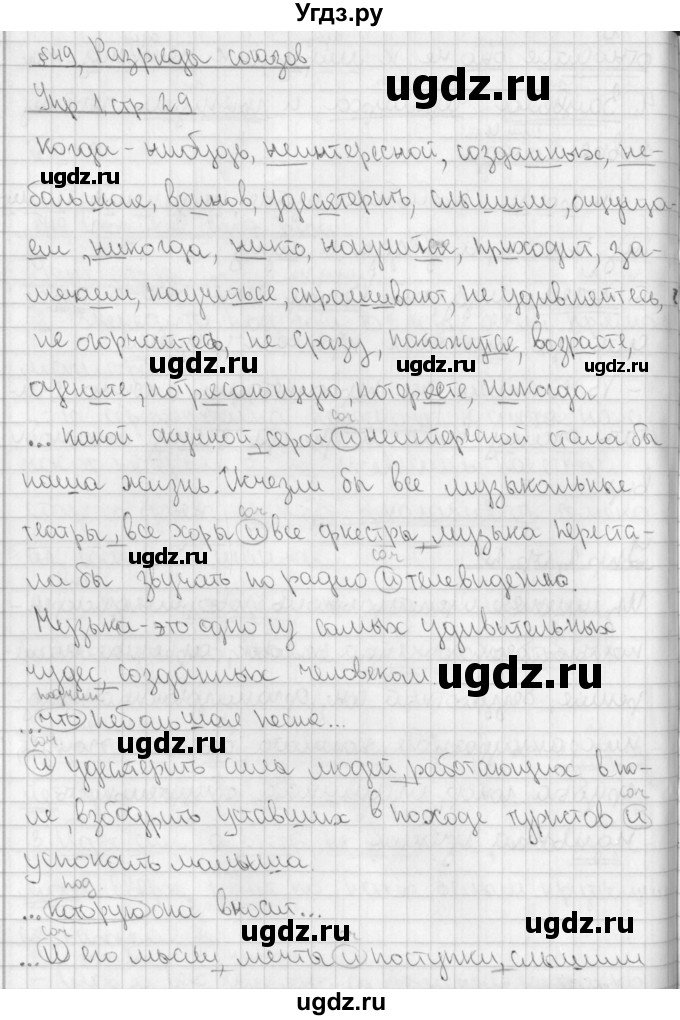 Угдз.ру
§49, Разряды союзов
Упр 1 стр 29
Когда-нибудь, неинтересной, созданных, не-
большая, воинов, удесятерить, слышим, ощуща-
ем, никогда, никто, научиться, приходит, за-
мечаем, научиться, спрашивают, не удивляйтесь,
не огорчайтесь, не сразу, покажутся, возрасте,
оцените, потрясающую, потеряете, никогда
соч
... какой скучной, серой и неинтересной стала бы
наша жизнь. Исчезли бы все музыкальные
соч
театры, все хоры и все оркестры, музыка переста-
соч
ла бы звучать по радио и телевидению.
Музыка-это одно из самых удивительных
чудес, созданных человеком
подчин
... что небольшая песня...
соч
и удесятерить сила людей, работающих в по-
соч
ле, взбодрить уставших в походе туристов и
успокоить малыша.
под.
... которую она вносит...
соч соч
... и его мысли, мечты и поступки, слышим
ugdz.ru
ugdz.ru
ugdz.ru
ugdz.ru
ugdz.ru
ugdz.ru
ugdz.ru
ugdz.ru
ugdz.ru
ugdz.ru
ugdz.ru
ugdz.ru